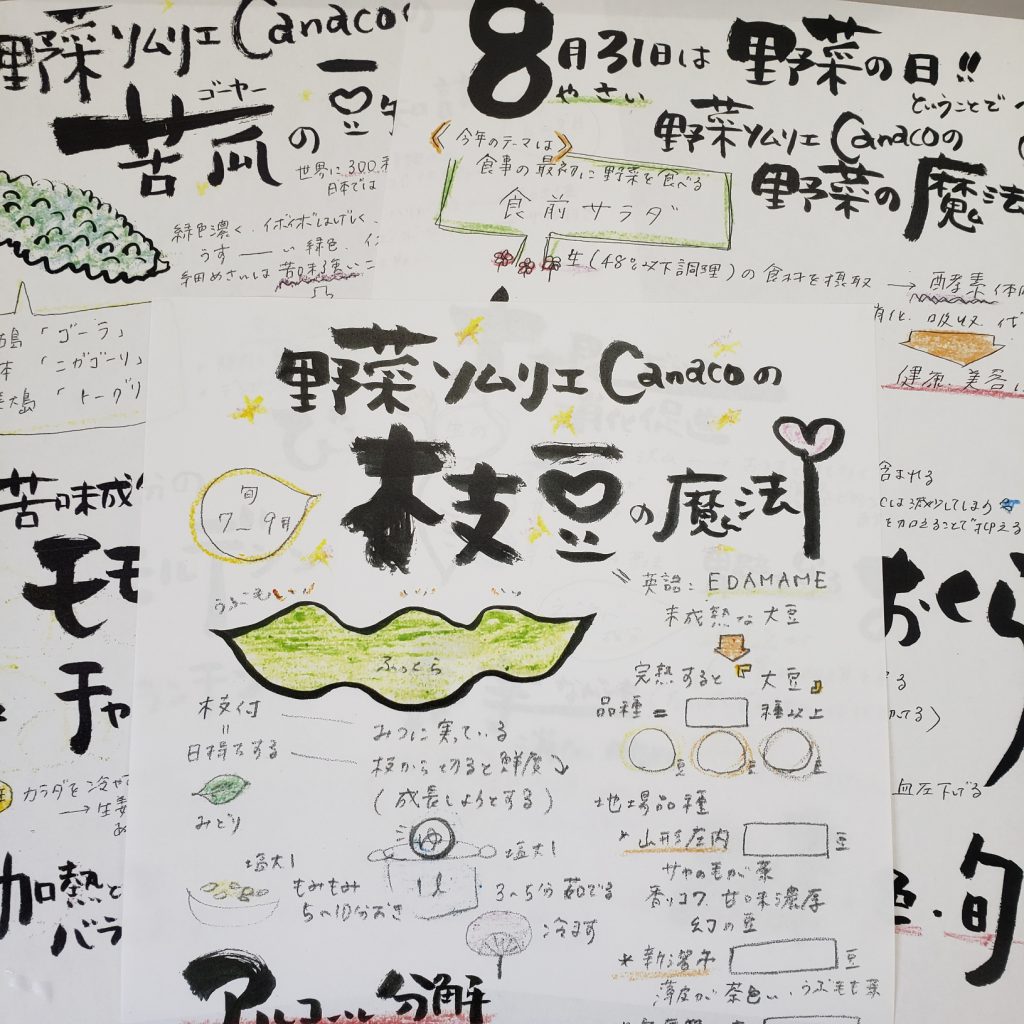 野菜ソムリエCanaco
ゴーヤー
苦瓜の豆
世界に300
日本では
緑色濃く、イボイボはげしく、
うすーい緑色、
細めさいは苦味強い
島「ゴーラ」
本「ニガゴーリ」
大島「トーグリ
苦味成
モモ
チャ
カラダを冷や
→生姜
加熱と
バラ
8月31日は野菜の日!!
やさい
ということで
野菜ソムリエCanacoの
野菜の魔法
《今年のテーマは》
食事の最初に野菜を食べる
食前サラダ
生(48℃以下調理)の食材を摂取→酵素
消化、吸収、代
健康、美容
含まれる
Cは減少してしまう
を加えることで抑える
おくら
血圧下げる
色・旬
野菜ソムリエCanacoの
枝豆の魔法
旬
7~9月
英語:EDAMAME
未成熟な大豆
完熟すると『大豆』
品種= 種以上
豆 豆 豆
うぶ毛
ふっくら
枝付
=
日持ちする
みつに実っている
枝から切ると鮮度↘
(成長しようとする)
みどり
塩大1
もみもみ
5~10分おき
ゆ
1ℓ
塩大1
3~5分茹でる
冷ます
地場品種
*山形庄内 豆
サヤの毛が茶
香りコク甘味濃厚
幻の豆
*新潟 豆
薄皮が茶色い、うぶ毛も茶
アルコール分解